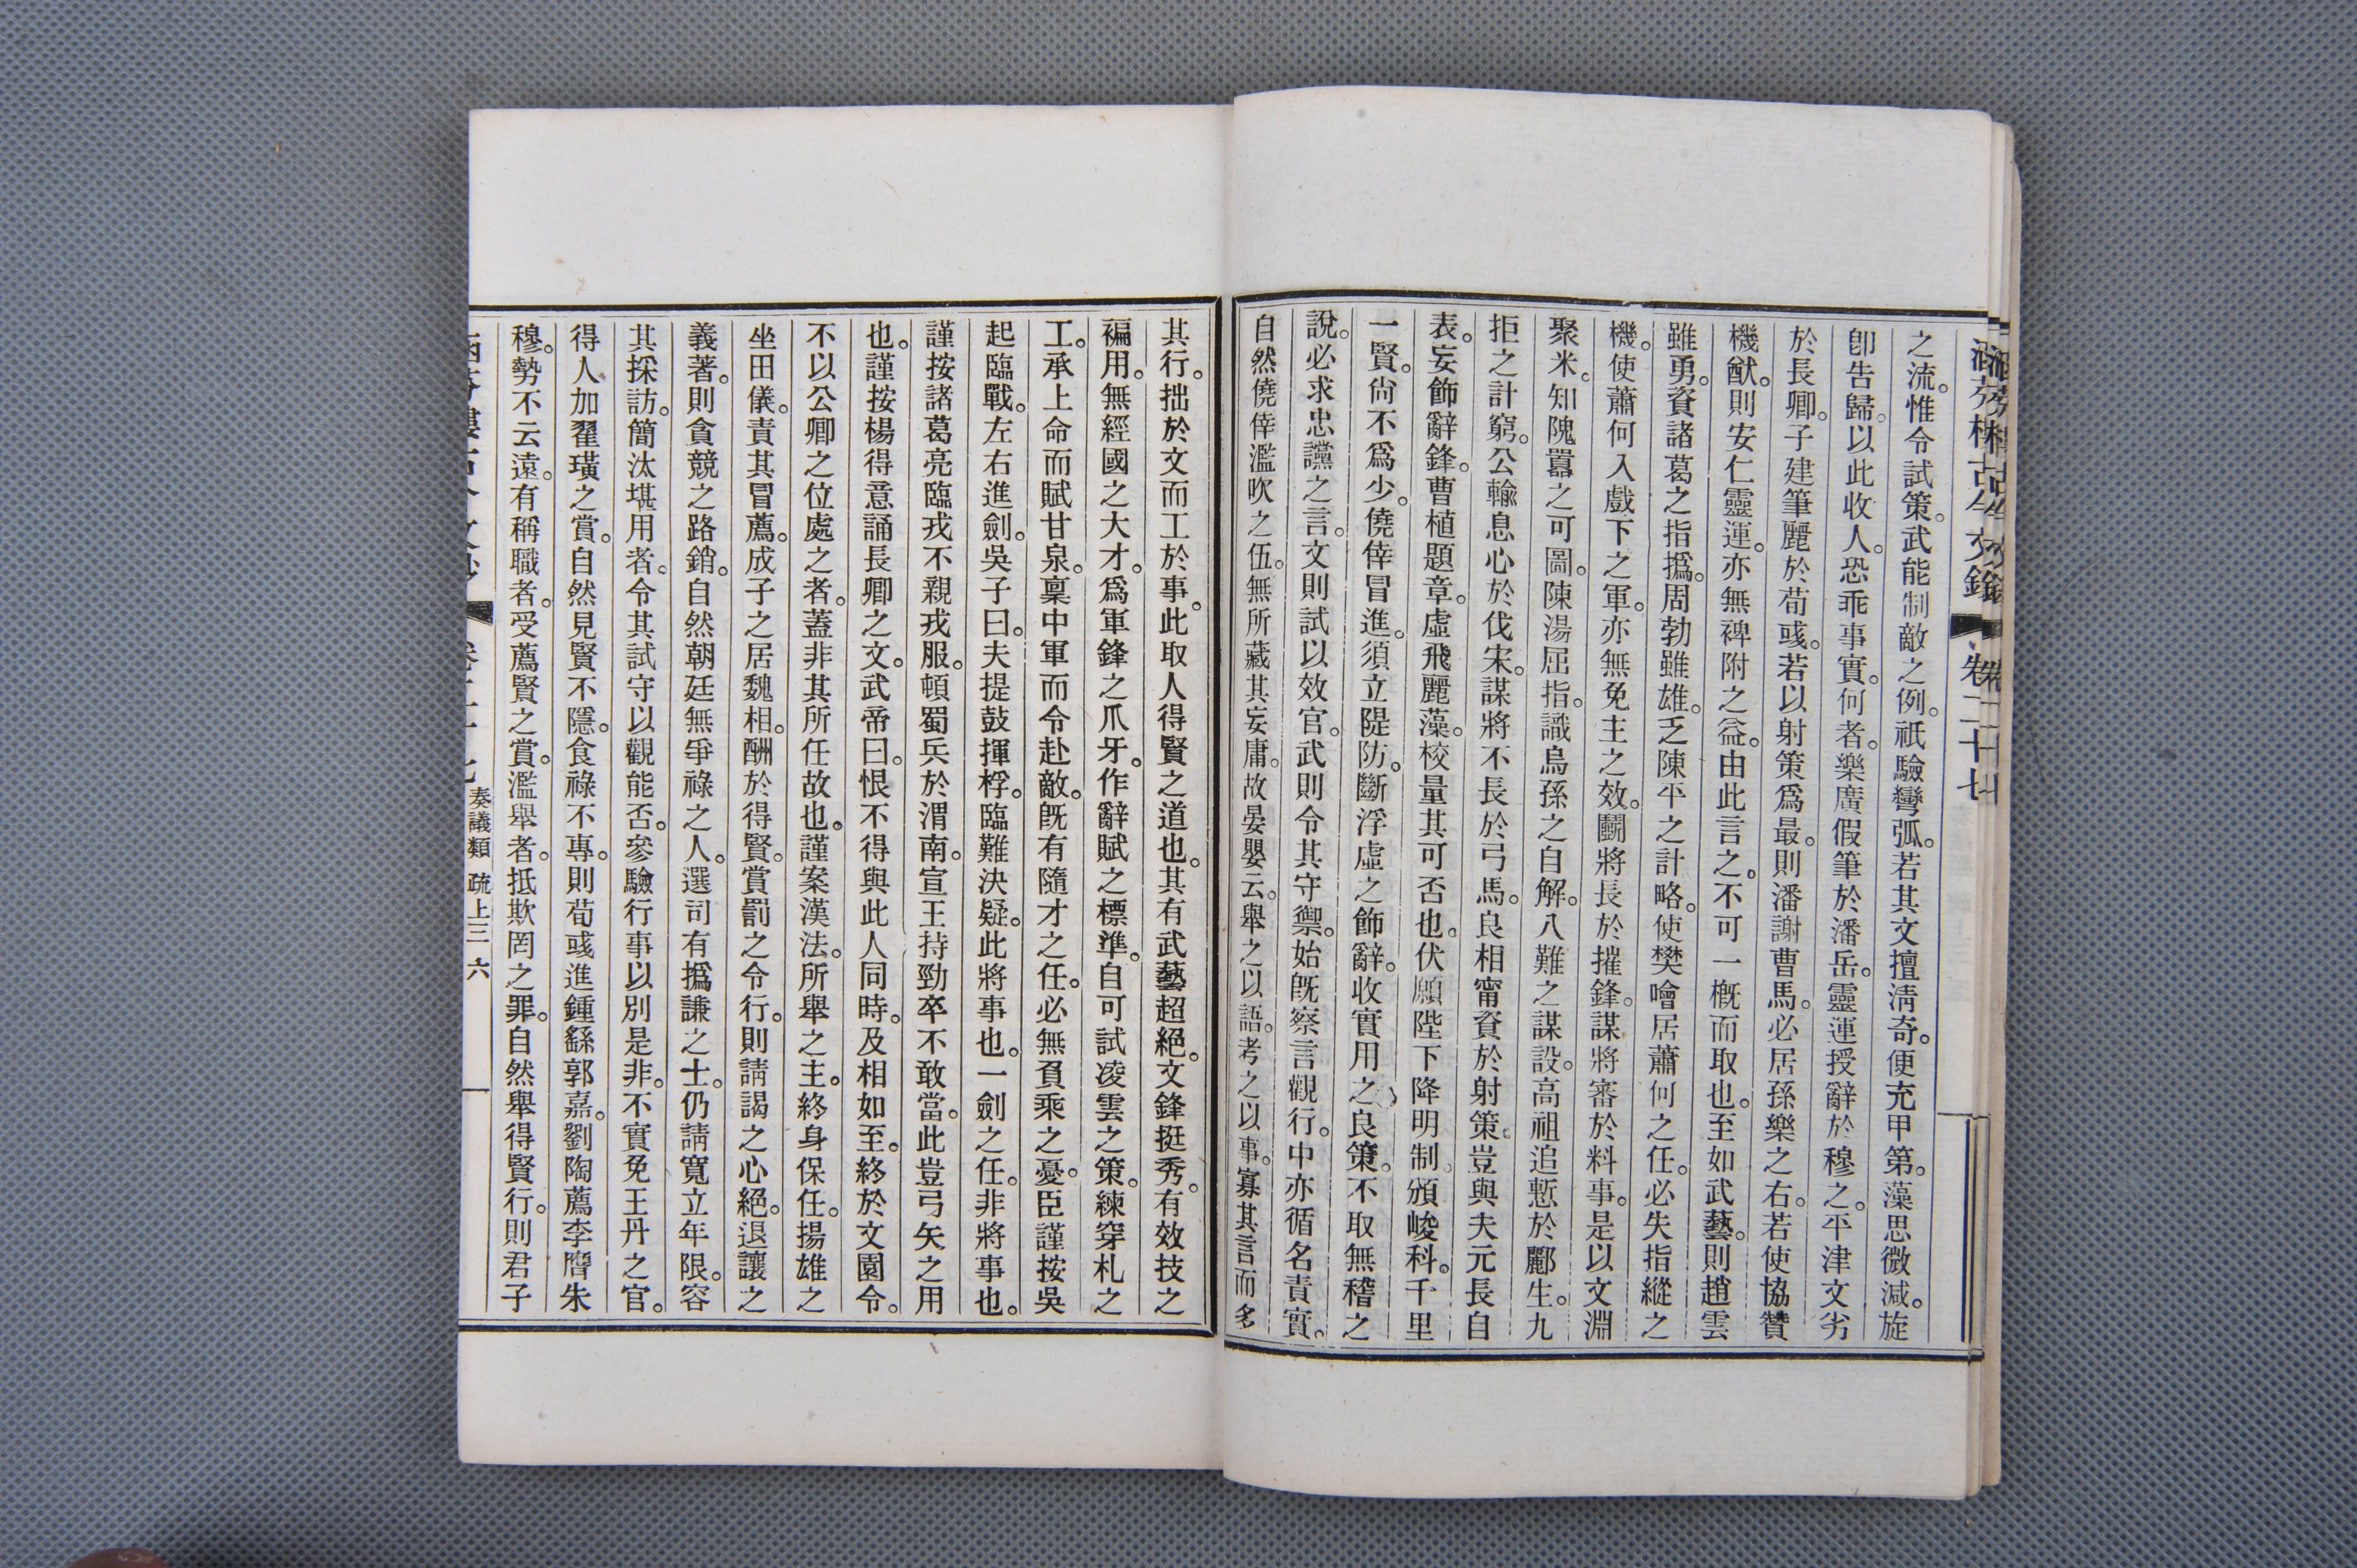 涵芬樓古今文鈔 卷二十七
之流。惟令試策。武能制敵之例。祇驗彎弧。若其文擅淸奇。便充甲第。藻思微減。旋
卽吿歸。以此收人。恐乖事實。何者。樂廣假筆於潘岳。靈運授辭於穆之。平津文劣
於長卿。子建筆麗於荀彧。若以射策爲最。則潘謝曹馬。必居孫樂之右。若使協贊
機猷。則安仁靈運。亦無裨附之益。由此言之。不可一槪而取也。至如武藝。則趙雲
雖勇。資諸葛之指撝。周勃雖雄。乏陳平之計略。使樊噲居蕭何之任。必失指縱之
機。使蕭何入戲下之軍。亦無免主之效。鬬將長於摧鋒。謀將審於料事。是以文淵
聚米。知隗囂之可圖。陳湯屈指。識烏孫之自解。八難之謀設。高祖追慙於酈生。九
拒之計窮。公輸息心於伐宋。謀將不長於弓馬。良相甯資於射策。豈與夫元長自
表。妄飾辭鋒。曹植題章。虛飛麗藻。校量其可否也。伏願陛下降明制。頒峻科。千里
一賢。尙不爲少。僥倖冒進。須立隄防。斷浮虛之飾辭。收實用之良策。不取無稽之
說。必求忠讜之言。文則試以效官。武則令其守禦。始旣察言觀行。中亦循名責實。
自然僥倖濫吹之伍。無所藏其妄庸。故晏嬰云。舉之以語。考之以事。寡其言而多
其行。拙於文而工於事。此取人得賢之道也。其有武藝超絕。文鋒挺秀。有效技之
褊用。無經國之大才。爲軍鋒之爪牙。作辭賦之標準。自可試凌雲之策。練穿札之
工。承上命而賦甘泉。稟中軍而令赴敵。旣有隨才之任。必無負乘之憂。臣謹按吳
起臨戰。左右進劍。吳子曰。夫提鼓揮桴。臨難決疑。此將事也。一劍之任。非將事也。
謹按諸葛亮臨戎不親戎服。頓蜀兵於渭南。宣王持勁卒不敢當。此豈弓矢之用
也。謹按楊得意誦長卿之文。武帝曰。恨不得與此人同時。及相如至。終於文園令。
不以公卿之位處之者。蓋非其所任故也。謹案漢法。所舉之主。終身保任。揚雄之
坐田儀。責其冒薦。成子之居魏相。酬於得賢。賞罰之令行。則請謁之心絕。退讓之
義著。則貪競之路銷。自然朝廷無爭祿之人。選司有撝謙之士。仍請寬立年限。容
其採訪。簡汰堪用者。令其試守以觀能否。參驗行事以別是非。不實免王丹之官。
得人加翟璜之賞。自然見賢不隱。食祿不專。則荀彧進鍾繇郭嘉。劉陶薦李膺朱
穆。勢不云遠。有稱職者。受薦賢之賞。濫舉者。抵欺罔之罪。自然舉得賢行。則君子
奏議類 疏上三 六